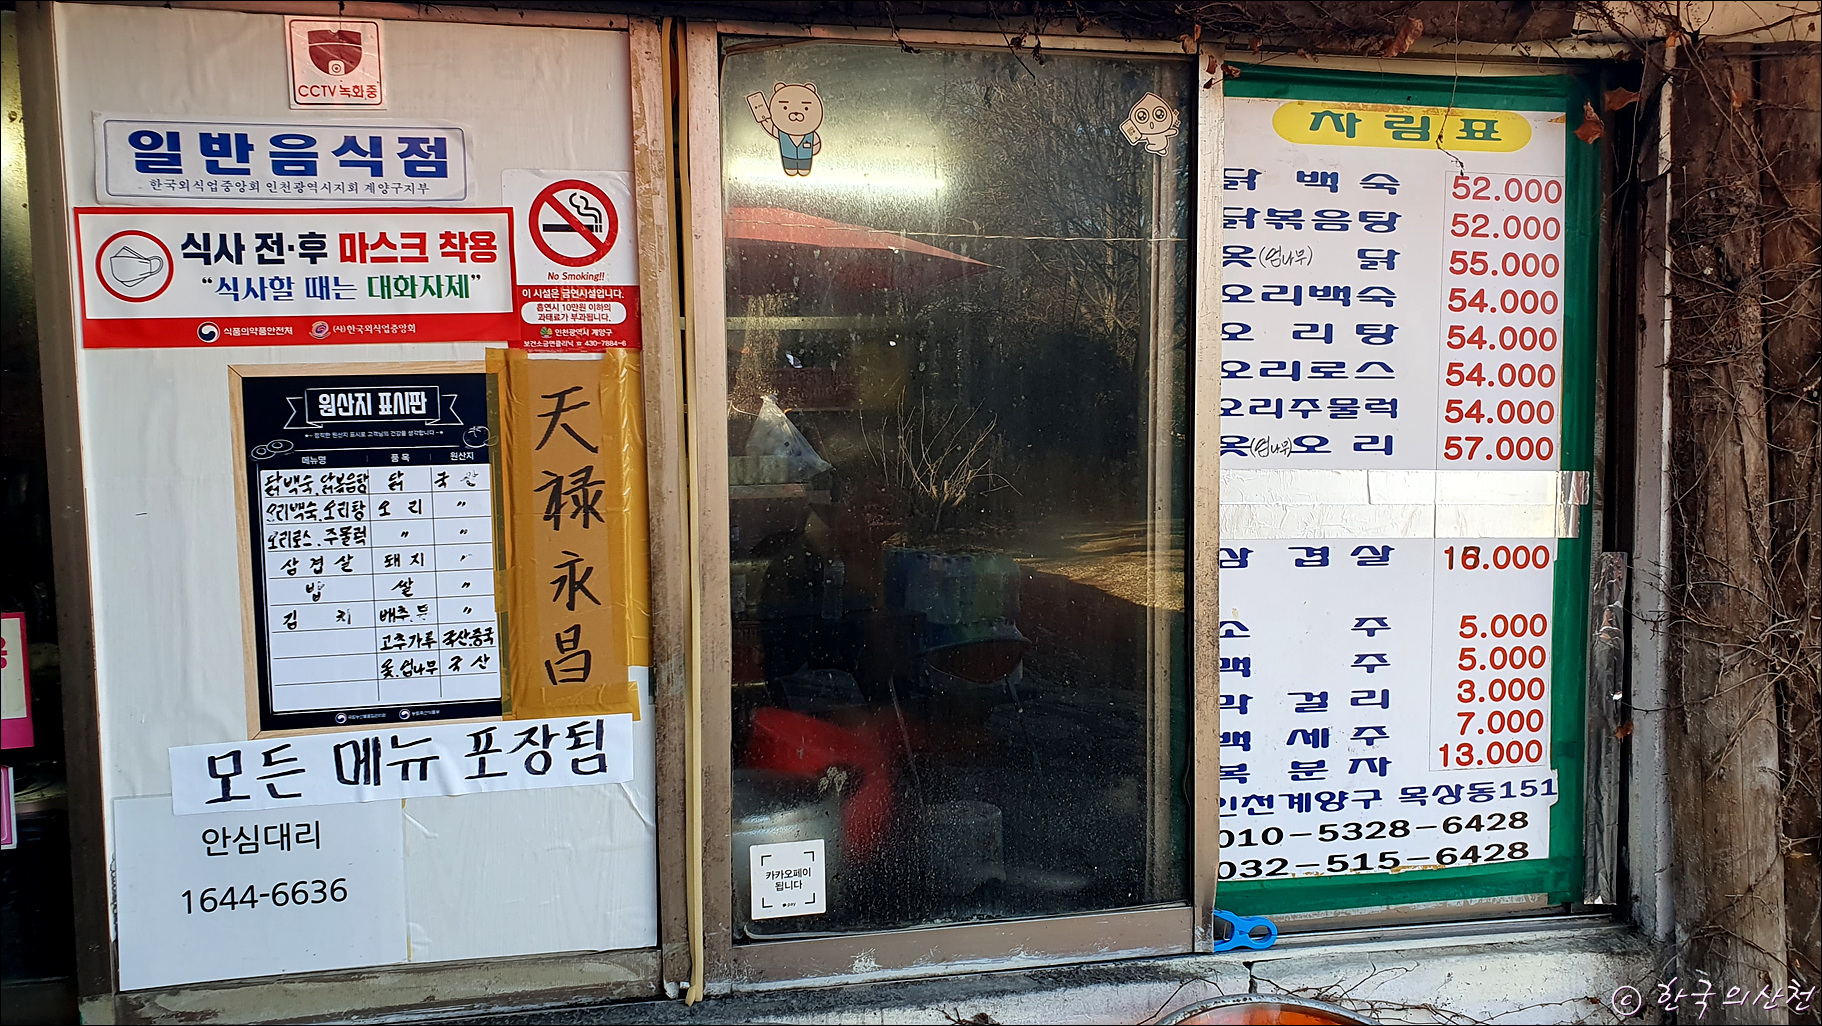 CCTV 녹화중
일반음식점
한국외식업중앙회 인천광역시지회 계양구지부
식사 전·후 마스크 착용
“식사할 때는 대화자제”
식품의약품안전처 (사)한국외식업중앙회
No Smoking!!
이 시설은 금연시설입니다.
흡연시 10만원 이하의
과태료가 부과됩니다.
인천광역시 계양구
보건소금연클리닉 ☎ 430-7884~6
원산지 표시판
정직한 원산지 표시로 고객님의 건강을 생각합니다
메뉴명 품목 원산지
닭백숙.닭볶음탕 닭 국산
오리백숙.오리탕 오리 〃
오리로스.주물럭 〃 〃
삼겹살 돼지 〃
밥 쌀 〃
김치 배추.무 〃
고추가루 국산.중국
옻.엄나무 국산
天祿永昌
모든 메뉴 포장됨
안심대리
1644-6636
카카오페이
됩니다
pay
차림표
닭백숙 52.000
닭볶음탕 52.000
옻(엄나무) 닭 55.000
오리백숙 54.000
오리탕 54.000
오리로스 54.000
오리주물럭 54.000
옻(엄나무)오리 57.000
삼겹살 16.000
소주 5.000
맥주 5.000
막걸리 3.000
백세주 7.000
복분자 13.000
인천계양구 목상동151
010-5328-6428
032-515-6428
© 한국의산천